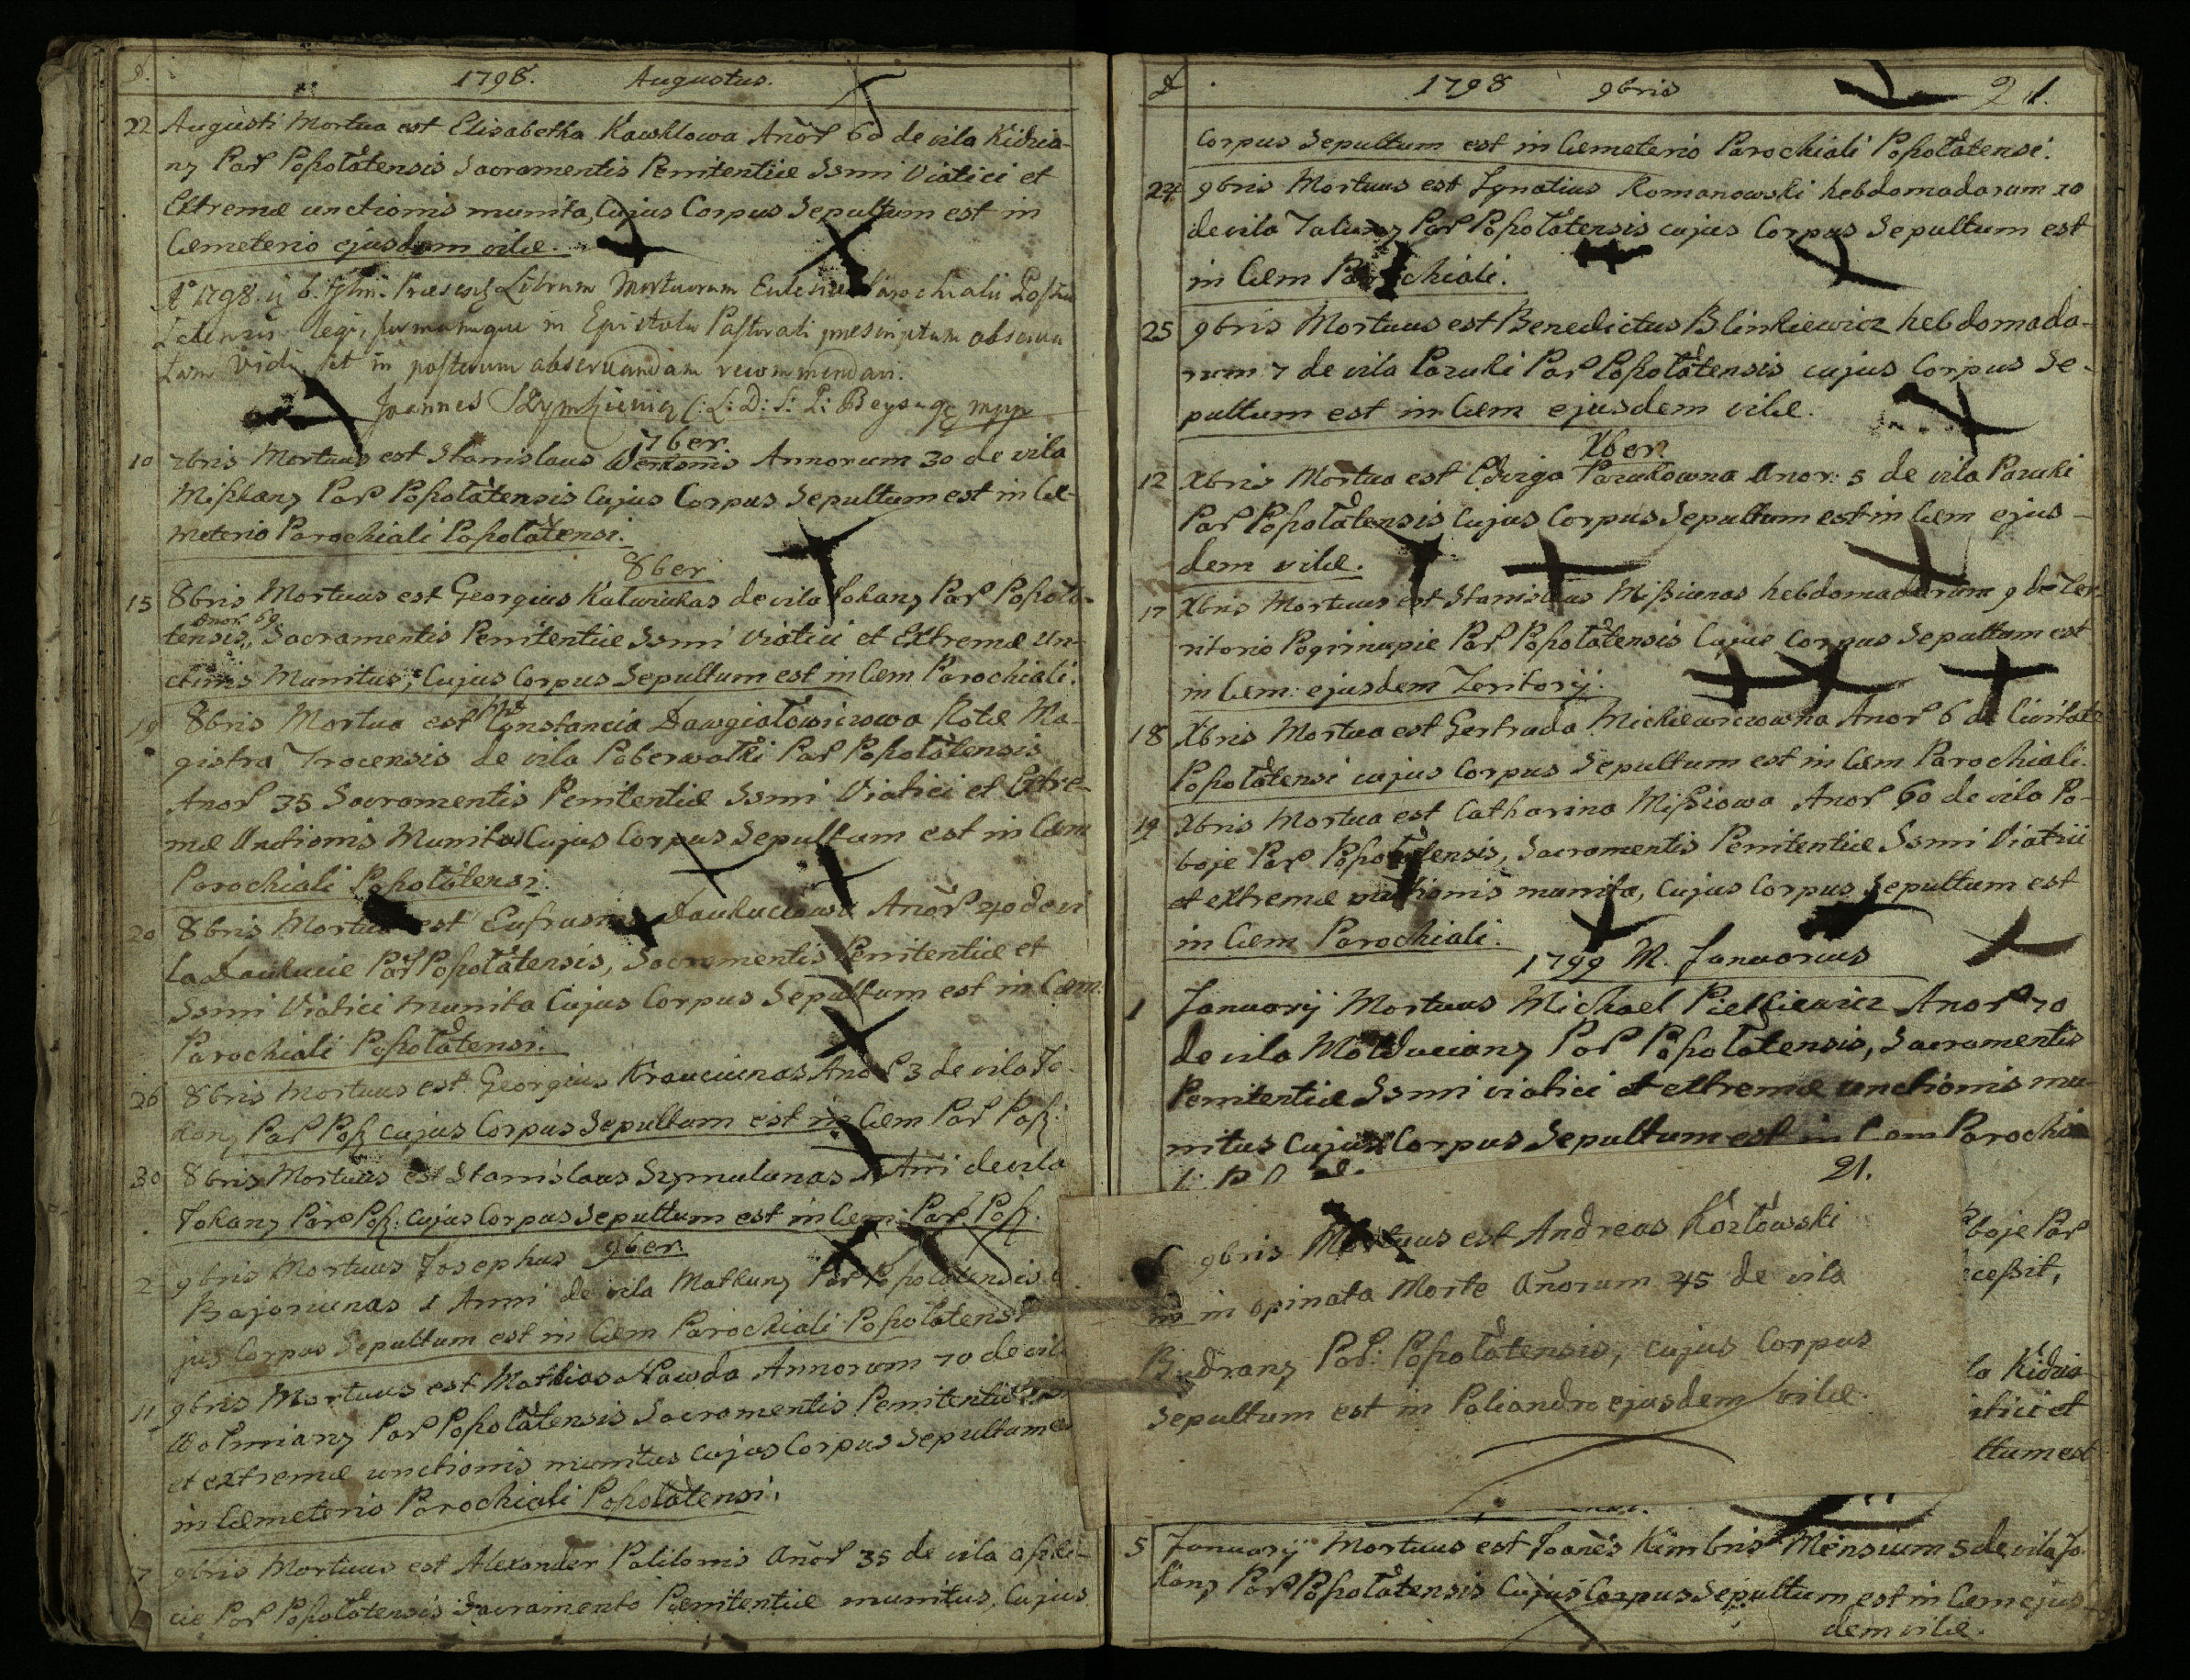 d.
1798. Augustus.
22 Augusti Mortua est Elisabetha Kawklowa Anor̃ 60 de vila Kidzia-
ny Par̃ Popolatensis Sacramentis Penitentiæ Ssmi Viatici et
Extremæ unctionis munita, Cujus Corpus Sepultum est in
Cæmeterio ejusdem vilæ.
Librum Mortuorum Parochialis
legi, formamque in Epistola Pastorali præscriptam observa
tam Vidi, et in posterum observandam recommendavi.
Joannes
7ber.
10 7bris Mortuus est Stanislaus Annorum 30 de vila
Mißkany Par̃ Popolatensis Cujus Corpus Sepultum est in Cæ-
meterio Parochiali Popolatensi.
8ber
15 8bris Mortuus est Georgius Katwinkas de vila Jokany Par̃ Popola-
Anor̃ 69
tensis, Sacramentis Penitentiæ Ssmi Viatici et Extremæ Un-
ctionis Munitus, Cujus Corpus Sepultum est in Cæm Parochiali.
19 8bris Mortua est Constancia Dawgiałowiczowa Rotæ Ma-
gistra Trocensis de vila Poberwałki Par̃ Popolatensis
Anor̃ 35 Sacramentis Penitentiæ Ssmi Viatici et Extre-
mæ Unctionis Munita Cujus Corpus Sepultum est in Cæm
Parochiali Popolatensi.
20 8bris Mortua est Eufrasina Daukuciowa Anor̃ 40 de vi
la Daukucie Par̃ Popolatensis, Sacramentis Penitentiæ et
Ssmi Viatici Munita Cujus Corpus Sepultum est in Cæm.
Parochiali Popolatensi.
26 8bris Mortuus est Georgius Krauciunas Anor̃ 3 de vila Jo-
kany Par̃ Poß cujus Corpus Sepultum est in Cæm Par̃ Poß.
30 8bris Mortuus est Stanislaus Szymulunas 1 Ani de vila
Jokany Par̃ Poß: cujus Corpus Sepultum est in Cæm: Par̃ Poß.
9ber.
2 9bris Mortuus Josephus
Bajoriunas 1 Anni de vila Matkuny Par̃ Popolatensis
jus Corpus Sepultum est in Cæm Parochiali Popolatensi
11 9bris Mortuus est Mathias Nawda Annorum 70 de vil
Wolmiany Par̃ Popolatensis Sacramentis Penitentiæ
et extremæ unctionis munitus cujus Corpus Sepultum
in Cæmeterio Parochiali Popolatensi.
17 9bris Mortuus est Alexander Palilonis Anor̃ 35 de vila
cie Par̃ Popolatensis Sacramento Pœnitentiæ munitus, Cujus
d.
1798 9bris 21.
Corpus Sepultum est in Cæmeterio Parochiali Popolatensi.
24 9bris Mortuus est Ignatius Romanowski hebdomadarum 10
de vila Taluny Par̃ Popolatensis cujus Corpus Sepultum est
in Cæm Parochiali.
25 9bris Mortuus est Benedictus Blinkiewicz hebdomada-
rum 7 de vila Pazuki Par̃ Popolatensis cujus Corpus Se-
pultum est in Cæm ejusdem vilæ.
Xber
12 Xbris Mortua est Edviga Pazukowna Anor: 5 de vila Pazuki
Par̃ Popolatensis Cujus Corpus Sepultum est in Cæm ejus-
dem vilæ.
17 Xbris Mortuus est Stanislaus Mißiunas hebdomadarum 9 de Ter-
ritorio Pogirnupie Par̃ Popolatensis Cujus Corpus Sepultum est
in Cæm: ejusdem Teritorij.
18 Xbris Mortua est Gertruda Mickiewiczowna Anor̃ 6 de Civitate
Popolatensi cujus Corpus Sepultum est in Cæm Parochiali.
19 Xbris Mortua est Catharina Mißiowa Anor̃ 60 de vila Po-
boje Par̃ Popolatensis, Sacramentis Penitentiæ Ssmi Viatici
et extremæ unctionis munita, cujus Corpus Sepultum est
in Cæm Parochiali.
1799 M. Januarius
1 Januarij Mortuus Michael Pietkiewicz Anor̃ 70
de vila Mołduciany Par̃ Popolatensis, Sacramentis
Penitentiæ Ssmi viatici et extremæ unctionis mu-
nitus Cujus Corpus Sepultum est in Cæm Parochia
21.
6 9bris Mortuus est Andreas Kozłowski
in opinata Morte Añorum 45 de vila
Budrany Par̃: Popolatensis, cujus Corpus
Sepultum est in Poliandro ejusdem vilæ
boje Par̃
ceßit,
la Kidzia-
itici et
ltum est
5 Januarij Mortuus est Joañes Kimbris Mensium 5 de vila Jo-
kany Par̃ Popolatensis Cujus Corpus Sepultum est in Cæm ejus-
dem vilæ.